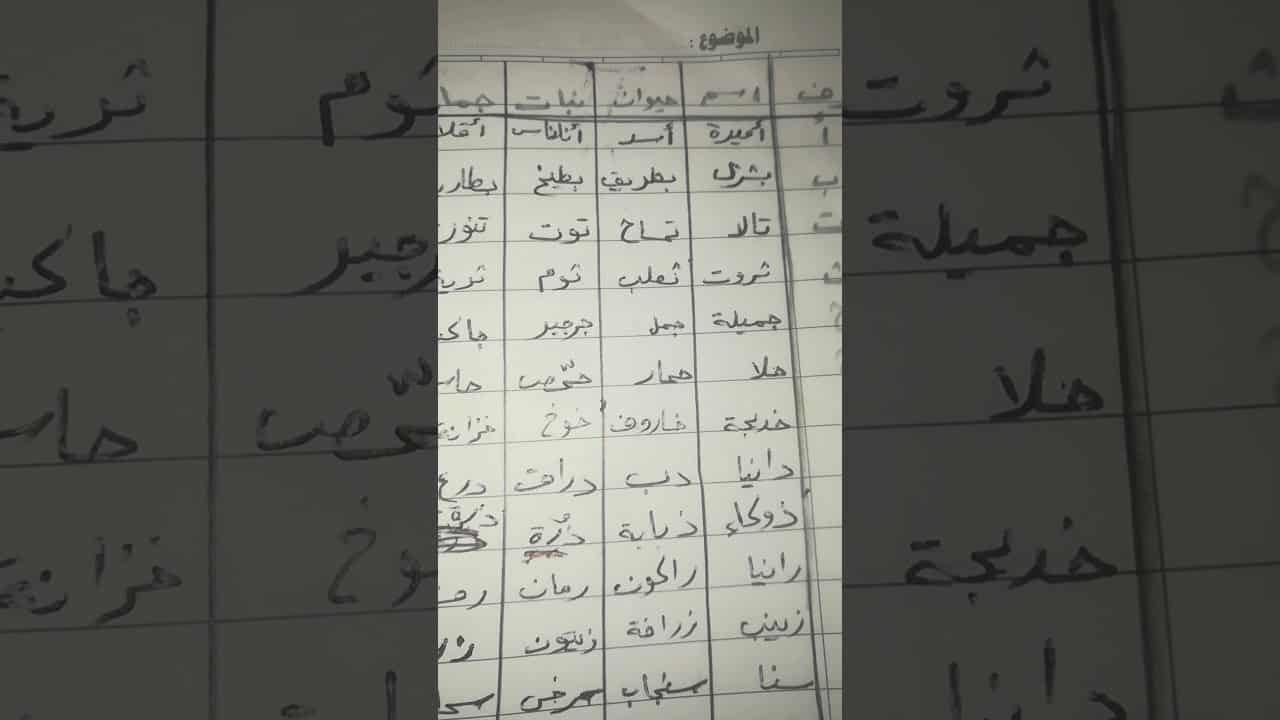 الموضوع :
اسم حيوان نبات جما
أ أميرة أسد أناناس أقلا
ب بشرى بطريق بطيخ بطار
ت تالا تمساح توت تنور
ث ثروت ثعلب ثوم ثرية
جميلة جمل جرجير جاك
حلا حمار حمّص حاس
خديجة خاروف خوخ خزانة
دانيا دب دراق درع
ذوكاء ذبابة ذُرة
رانيا راكون رمان
زينب زرافة زيتون
سنا سنجاب